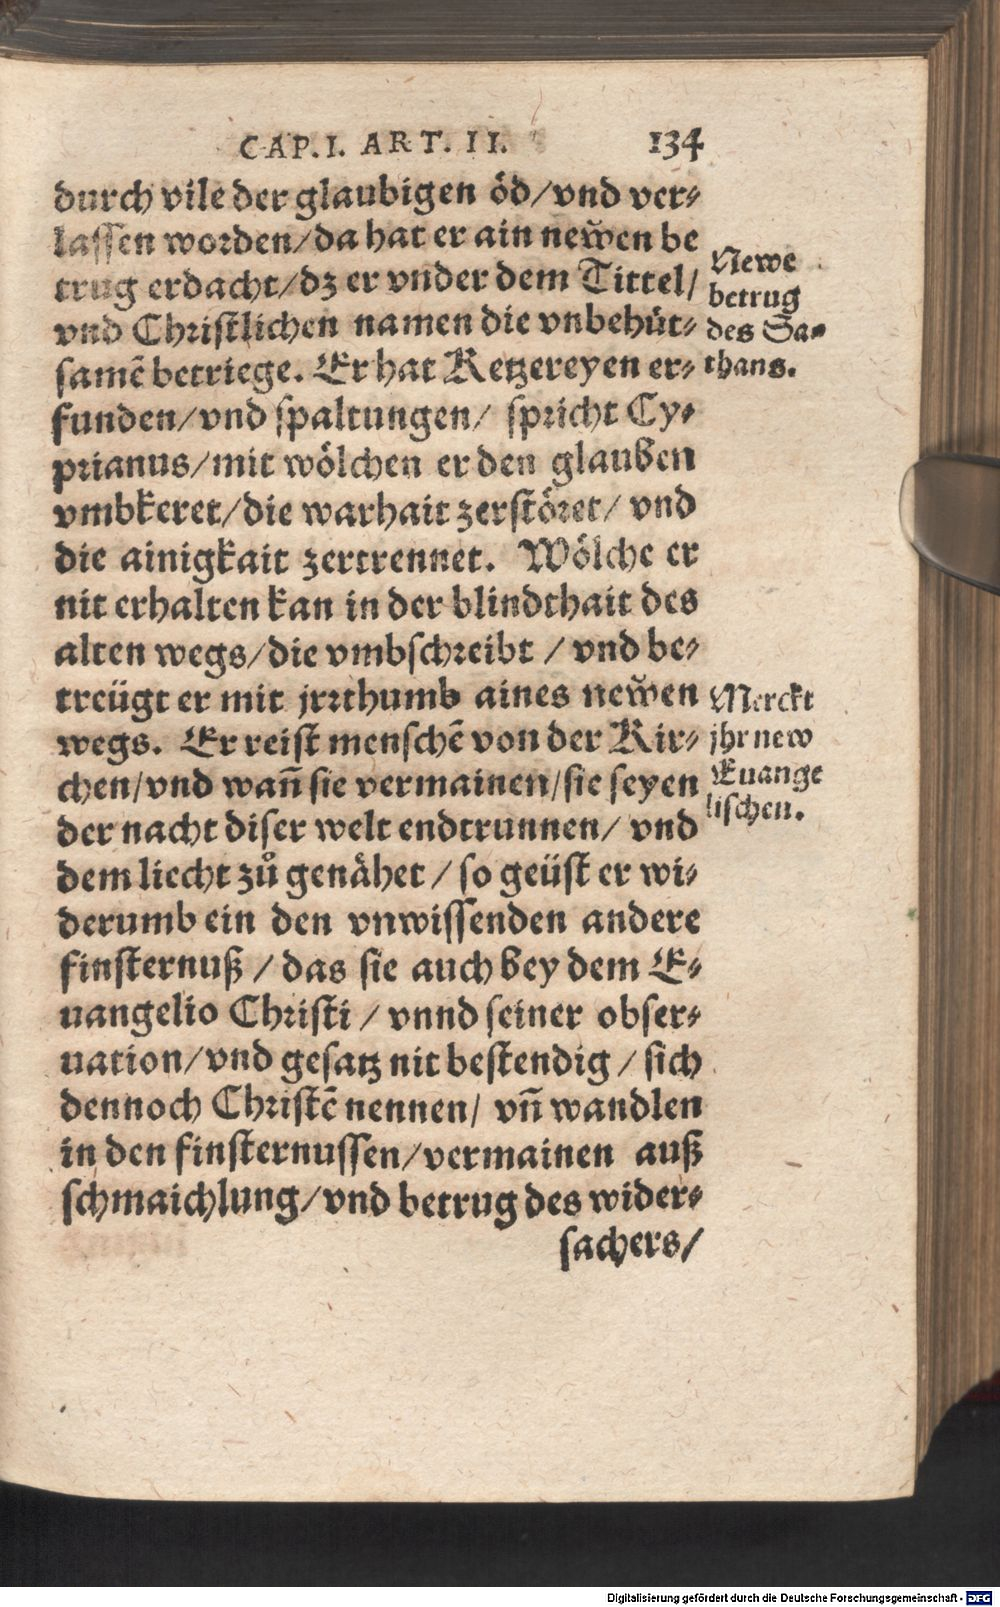 CAP. I. ART. II. 134
durch vile der glaubigen öd/vnd ver⸗
lassen worden/da hat er ain neẅen be
trug erdacht/dz er vnder dem Tittel/
vnd Christlichen namen die vnbehüt⸗
samē betriege. Er hat Ketzereyen er⸗
funden/vnd spaltungen/ spricht Cy⸗
prianus/mit wölchen er den glauben
vmbkeret/die warhait zerstöret/ vnd
die ainigkait zertrennet. Wölche er
nit erhalten kan in der blindthait des
alten wegs/die vmbschreibt / vnd be⸗
treügt er mit jrrthumb aines neẅen
wegs. Er reist menschē von der Kir⸗
chen/vnd wañ sie vermainen/sie seyen
der nacht diser welt endtrunnen/ vnd
dem liecht zů genähet / so geüst er wi⸗
derumb ein den vnwissenden andere
finsternuß / das sie auch bey dem E⸗
uangelio Christi / vnnd seiner obser⸗
uation/vnd gesatz nit bestendig / sich
dennoch Christē nennen/ vñ wandlen
in den finsternussen/vermainen auß
schmaichlung/vnd betrug des wider⸗
sachers/
Newe
betrug
des Sa⸗
thans.
Merckt
jhr new
Euange
lischen.
Digitalisierung gefördert durch die Deutsche Forschungsgemeinschaft - DFG